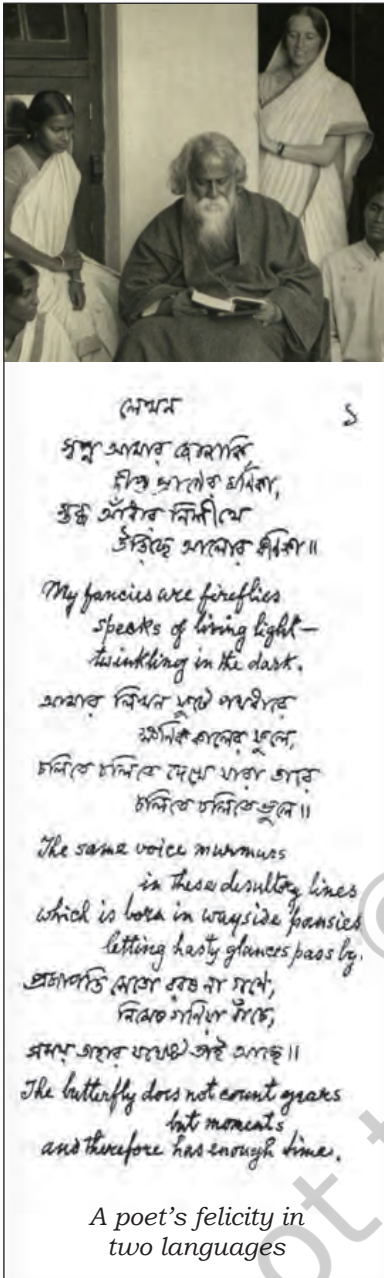 লেখন ১
স্বপ্ন আমার জোনাকি,
দীপ্ত প্রাণের মণিকা,
স্তব্ধ আঁধার নিশীথে
উড়িছে আলোর কণিকা॥
My fancies are fireflies
specks of living light—
twinkling in the dark.
আমার লিখন ফুটে পথধারে
ক্ষণিক কালের ফুলে,
চলিতে চলিতে দেখে যারা তারে
চলিতে চলিতে ভুলে॥
The same voice murmurs
in these desultory lines
which is born in wayside pansies
letting hasty glances pass by.
প্রজাপতি সেতো বরষ না গণে,
নিমেষ গণিয়া বাঁচে,
সময় তাহার যথেষ্ট তাই আছে॥
The butterfly does not count years
but moments
and therefore has enough time.
A poet's felicity in
two languages